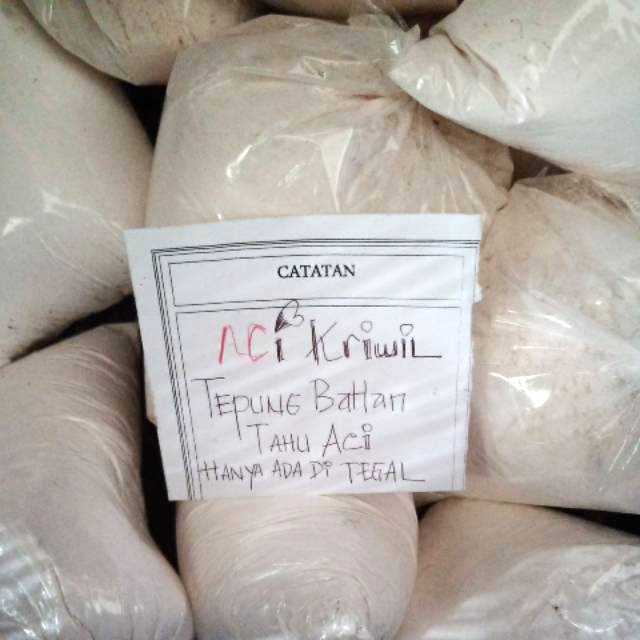 CATATAN
ACi KriwiL
TEPUNG BaHan
TAHU ACi
HANYA ADA Di TEGAL